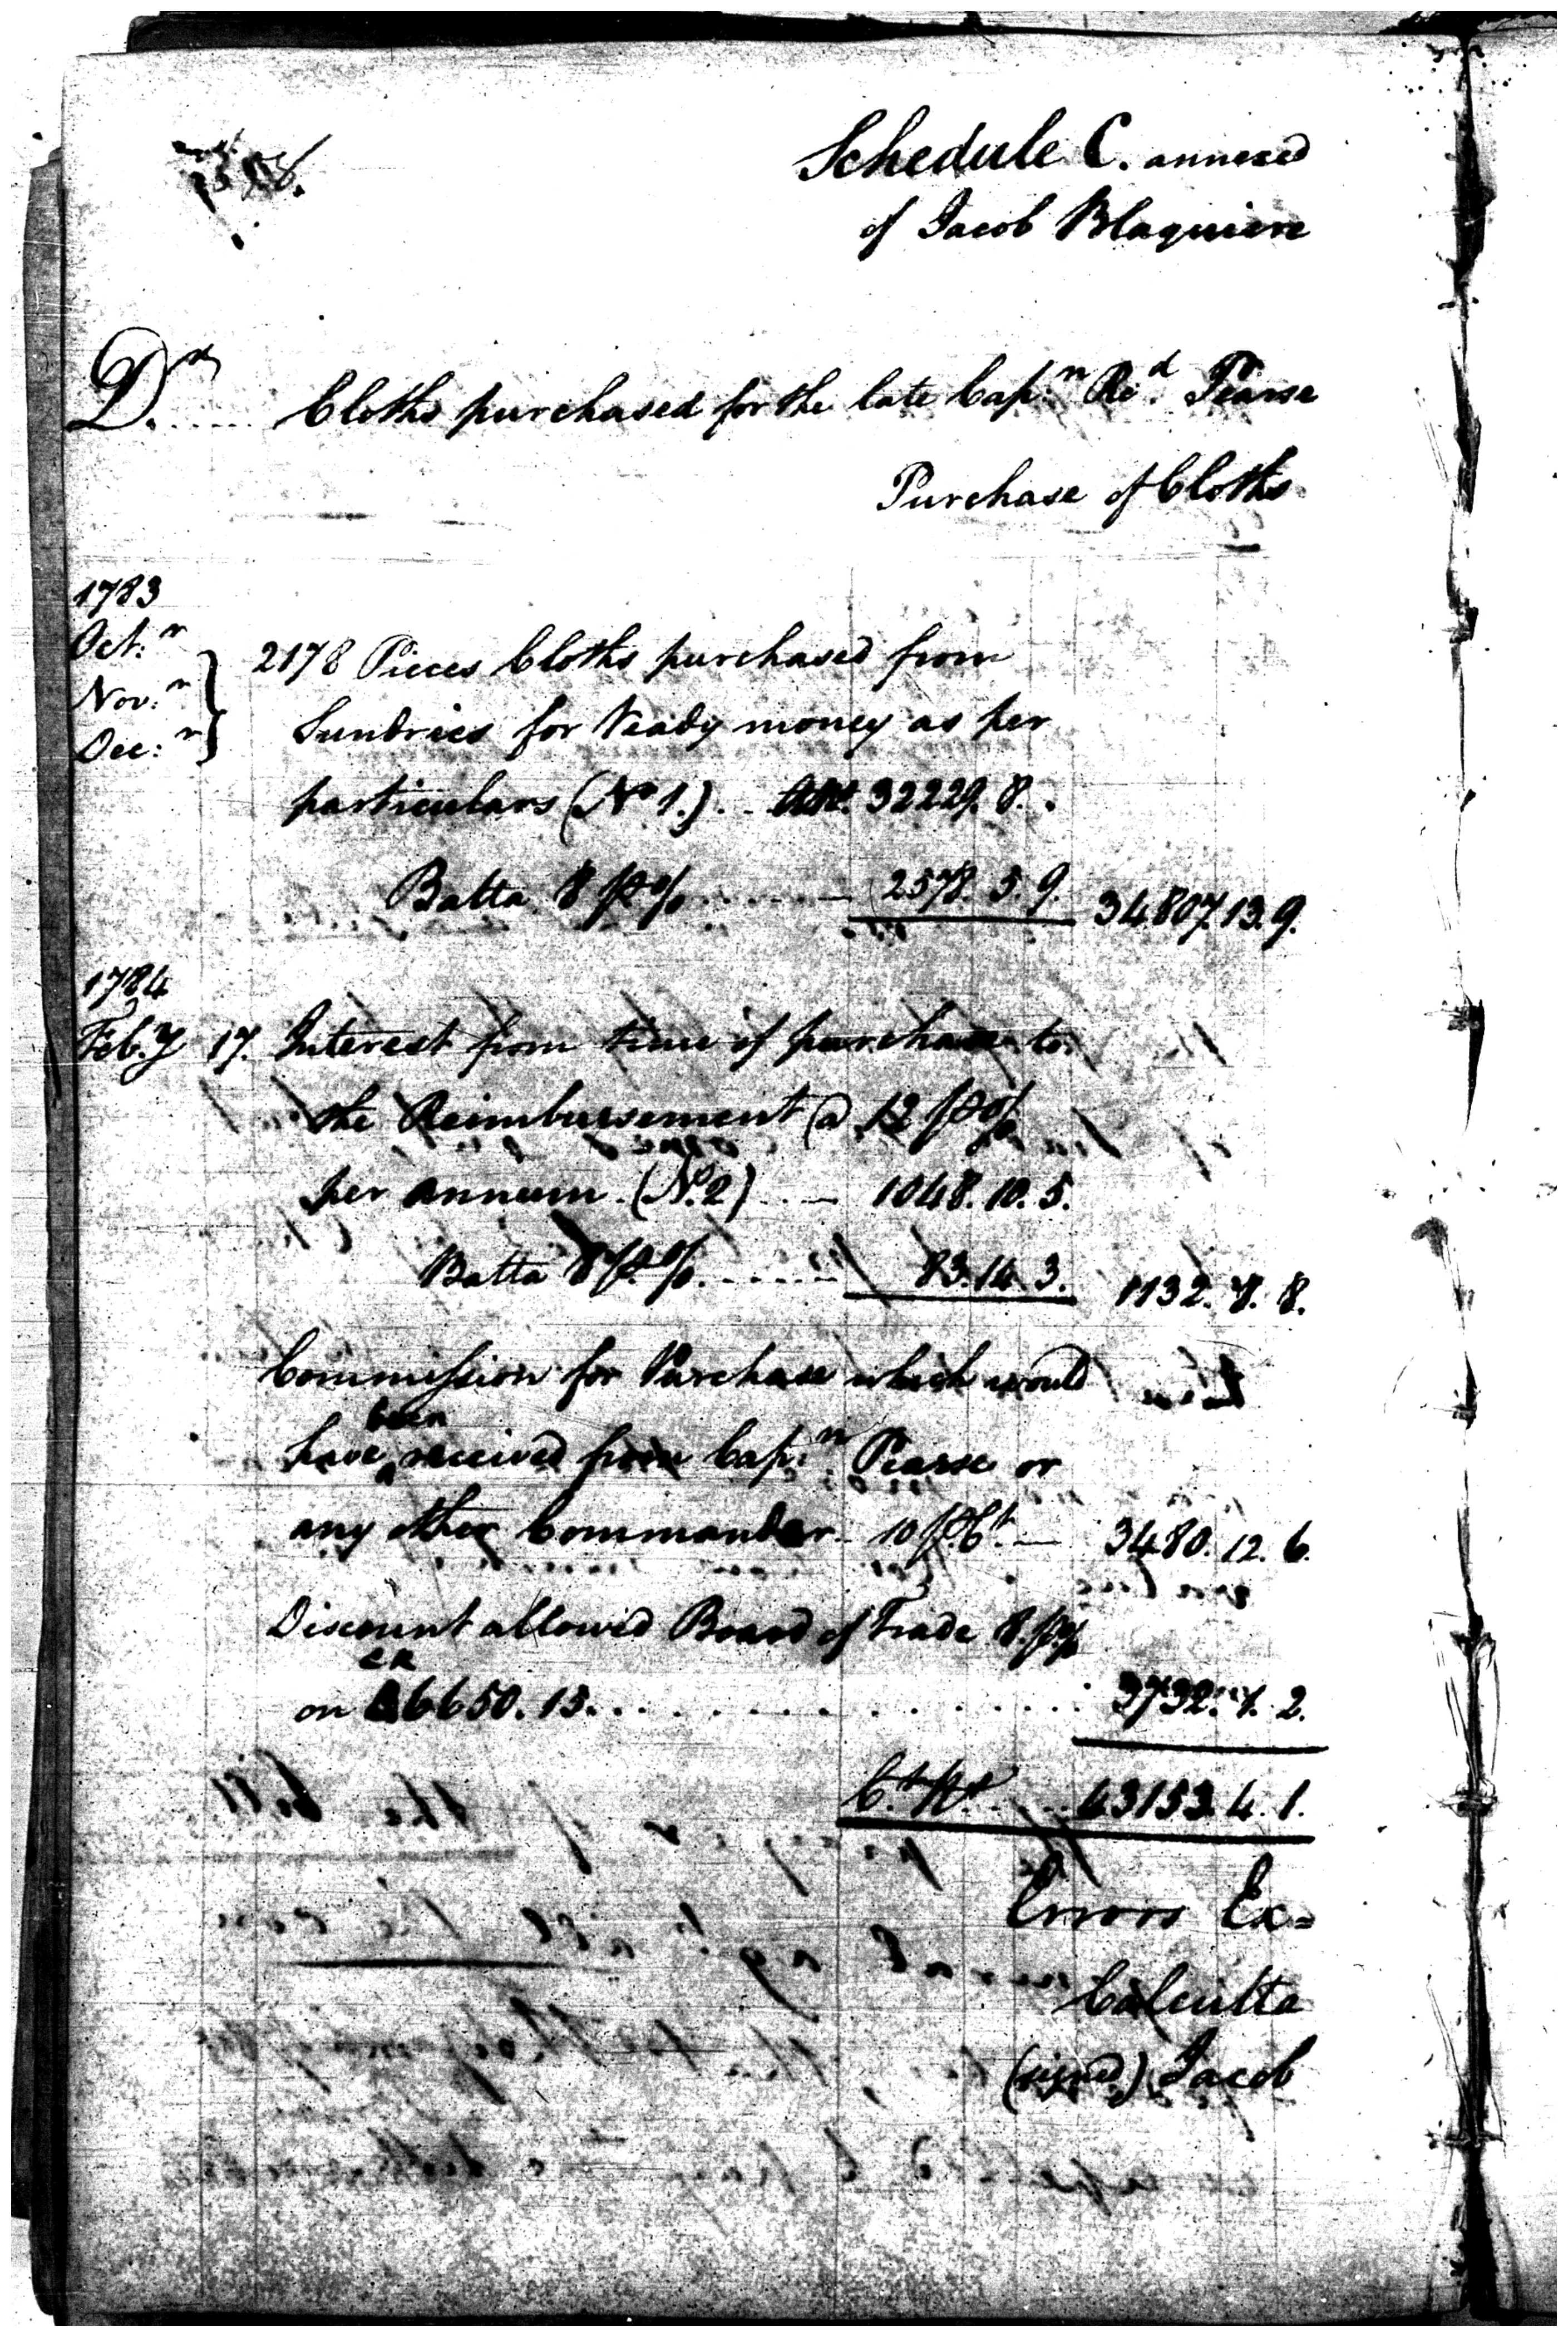 Schedule C. annexed
of Jacob Blaquiere
Dr ...... Cloths purchased for the late Cap:n Ri:d Pearse
Purchase of Cloths
1783
Oct:r
Nov:r
Dec:r
2178 Pieces Cloths purchased from
Sundries for Ready money as per
particulars (No 1.) .. 32229. 8. .
Batta 8 p% ...... 2578. 5. 9. 34807. 13. 9.
1784
Feb.y 17. Interest from time of purchase to
the Reimbursement @ 12 p%
per annum. (No. 2) ... 1048. 10. 5.
Batta 8 p% ...... 83. 14. 3. 1132. 8. 8.
Commission for Purchase which would
have been received from Cap:n Pearse or
any other Commander. 10 p Ct. — 3480. 12. 6.
Discount allowed Board of Trade 8 p%
on 46650. 15. .......... 3732. 1. 2.
Ct. Rs ... 43153. 4. 1.
Errors Ex=
Calcutta
(signed) Jacob